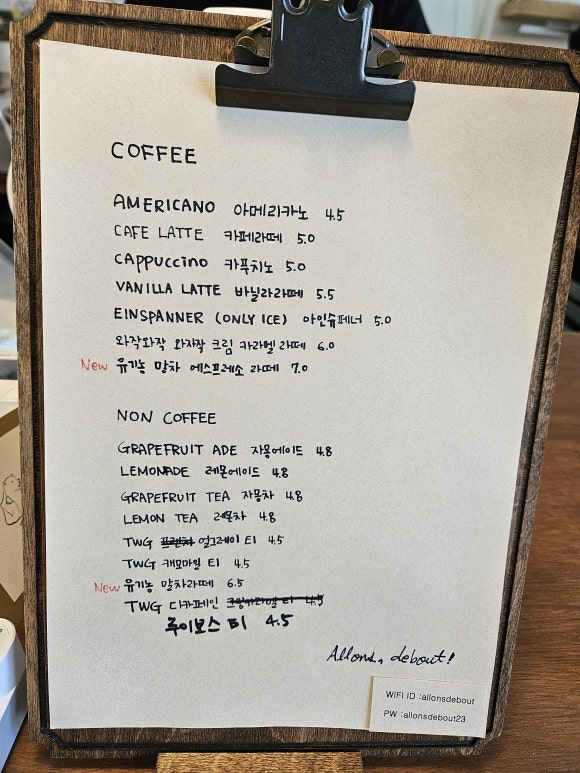 COFFEE
AMERICANO 아메리카노 4.5
CAFE LATTE 카페라떼 5.0
CAPPUCCINO 카푸치노 5.0
VANILLA LATTE 바닐라라떼 5.5
EINSPANNER (ONLY ICE) 아인슈페너 5.0
와작와작 와자작 크림 카라멜 라떼 6.0
New 유기농 말차 에스프레소 라떼 7.0
NON COFFEE
GRAPEFRUIT ADE 자몽에이드 4.8
LEMONADE 레몬에이드 4.8
GRAPEFRUIT TEA 자몽차 4.8
LEMON TEA 레몬차 4.8
TWG 얼그레이 티 4.5
TWG 캐모마일 티 4.5
New 유기농 말차라떼 6.5
TWG 디카페인 크림카라멜 티 4.5
루이보스 티 4.5
Allons, debout!
WIFI ID :allonsdebout
PW :allonsdebout23